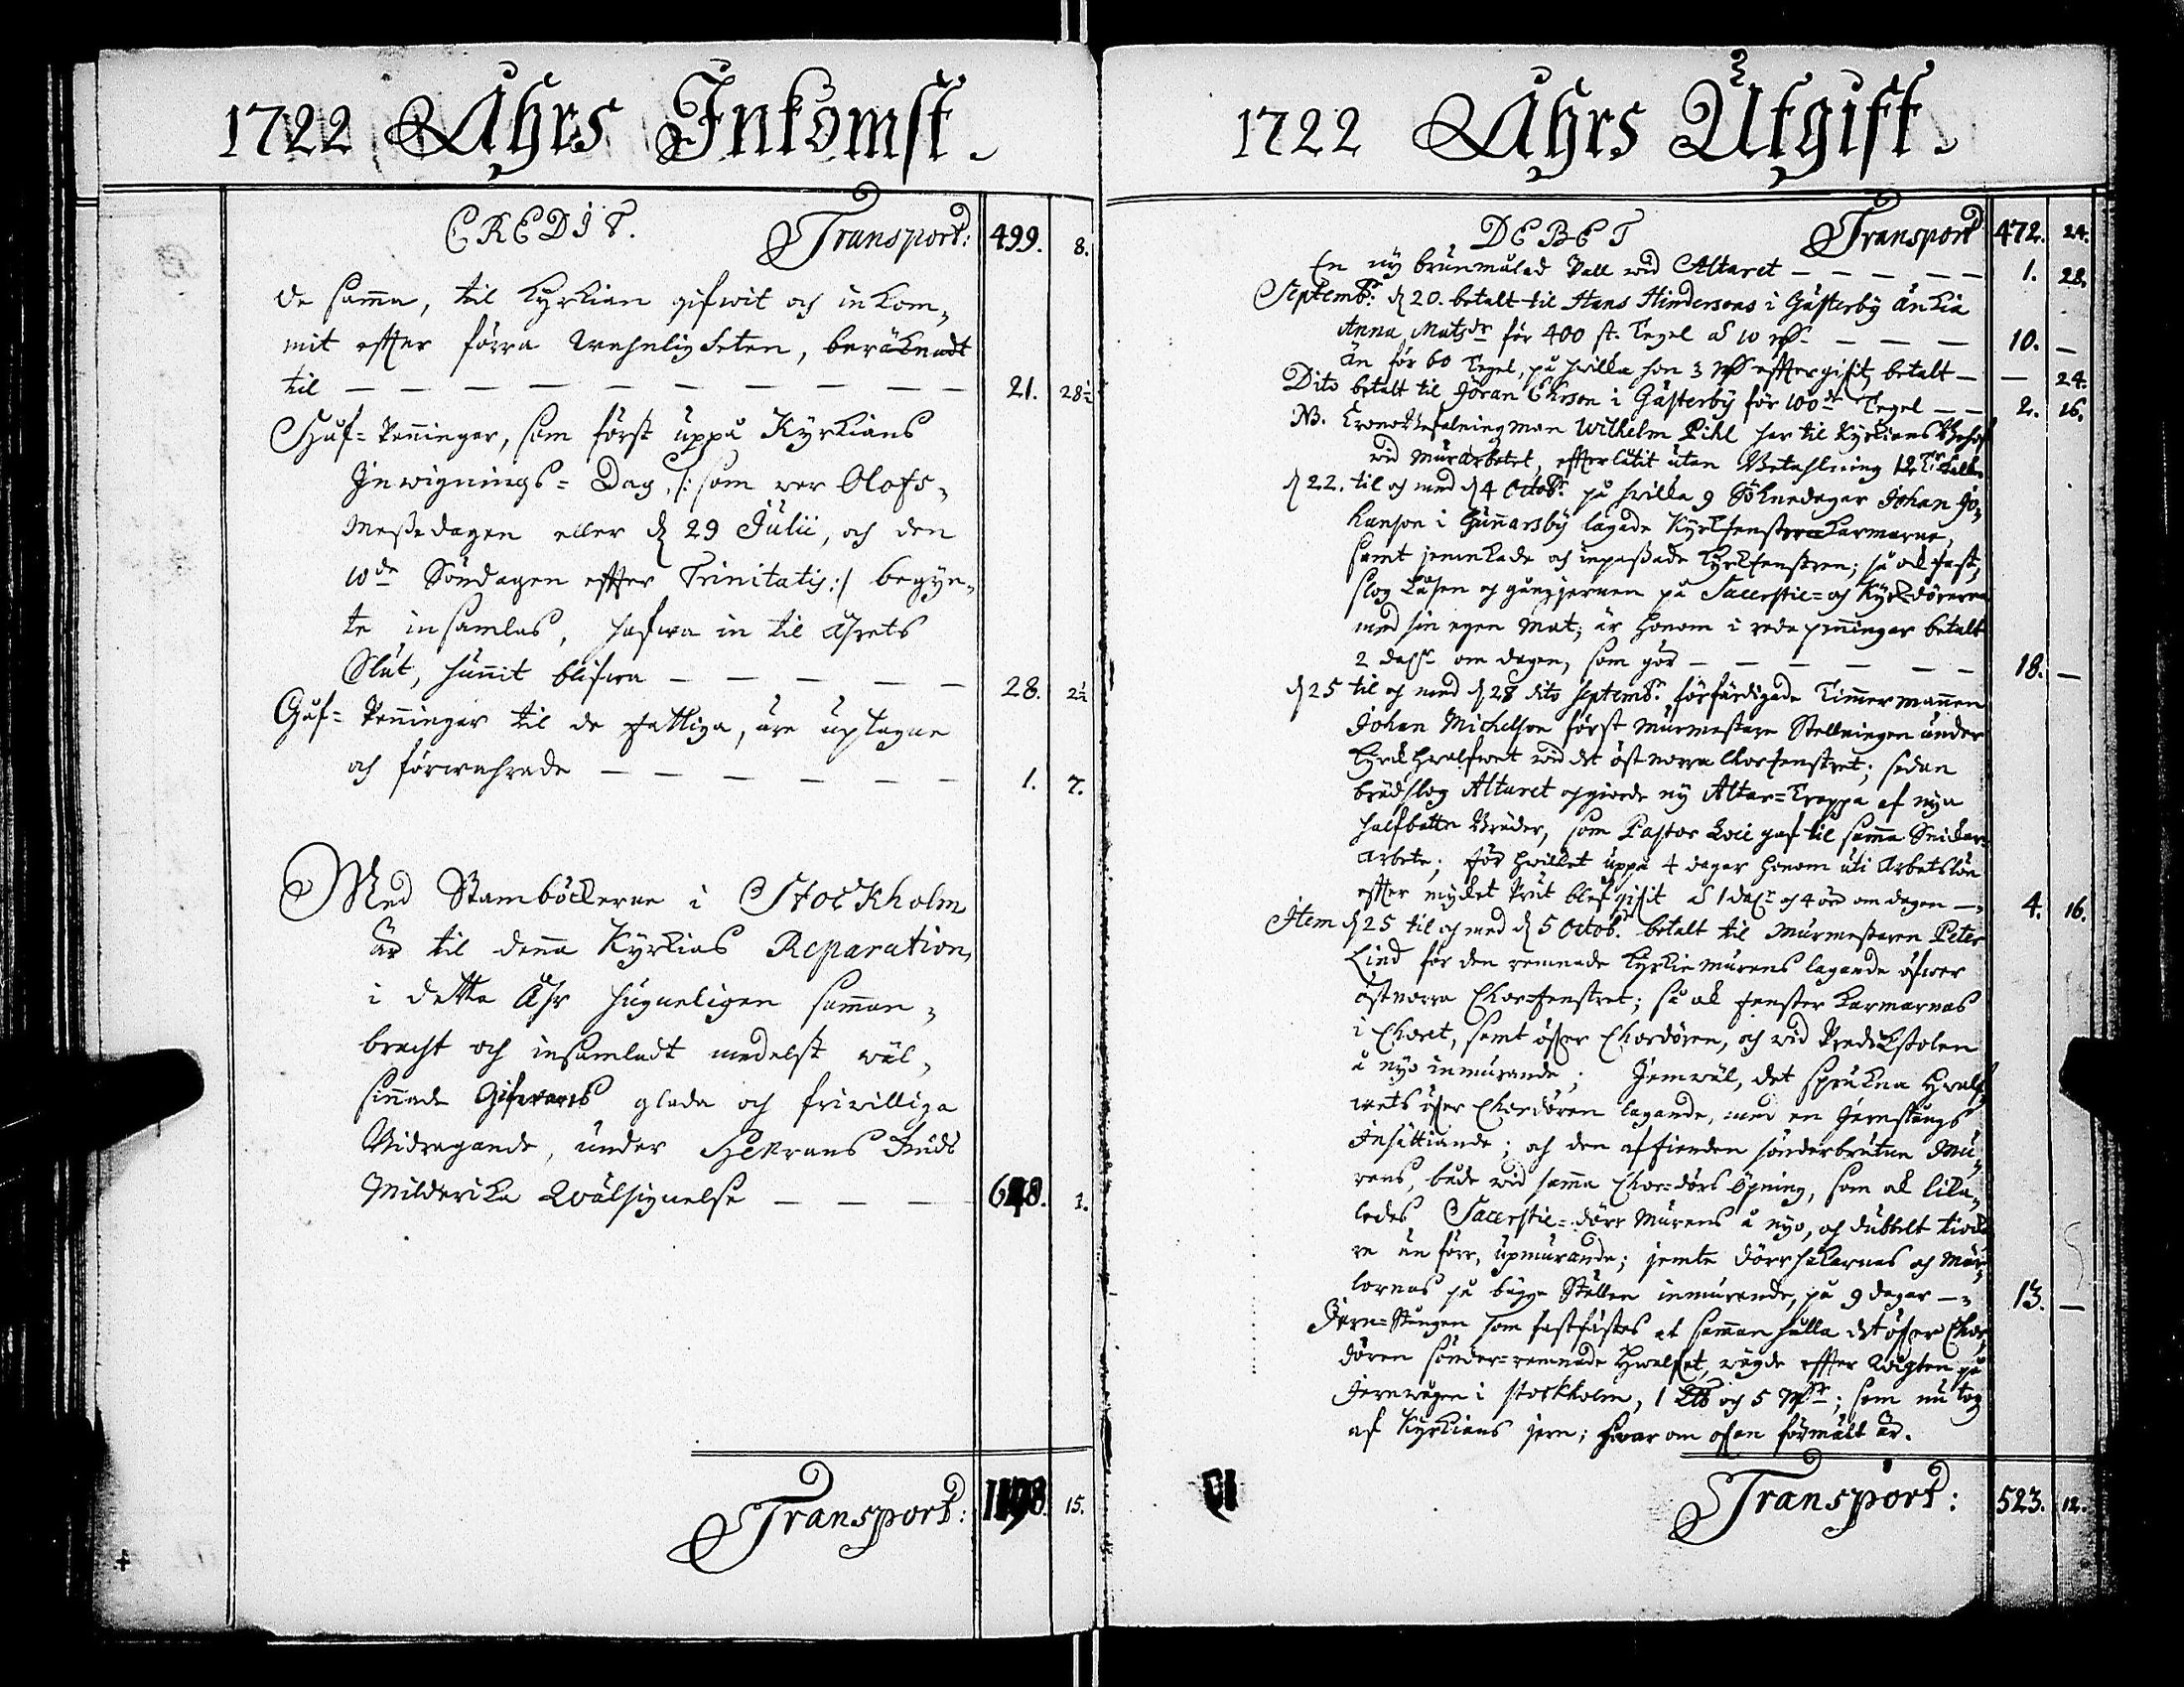 1722 Åhrs Inkomst.
CREDIT. Transport: 499. 8.
de samma, til Kyrkian gifwit och inkom-
mit efter förra wahnligheten, beräknadt
til — — — — — — — — — — 21. 28½
Håf-Penningar, som först uppå Kyrkians
Inwignings-Dag, /: som war Olofs-
Messedagen eller d 29 Julii, och den
10de Söndagen effter Trinitatis :/ begyn-
te insamlas, hafwa in til åhrets
Slut, hunnit blifwa — — — — — 28. 2½
Gåf-Penningar til de fattiga, äre uptagne
och förwahrade — — — — — — — 1. 7.
Med Stamböckerne i Stockholm
är til denna Kyrkias Reparation,
i detta åhr hugneligen samman-
bracht och insamladt medelst wäl-
sinnade Gifwares glada och friwilliga
Bidragande, under Herrans Guds
Milderika Wälsignelse — — — 648. 1.
Transport: 1198. 15.
1722 Åhrs Utgift.
DEBET Transport 472. 24.
En ny brunmålad Pall wid Altaret — — — — — 1. 28.
Septembr: d 20. betalt til Hans Hindersons i Gästerby änkia
Anna Matsdr för 400 st. Tegel à 10 — — — 10. —
än för 60 Tegel, på hwilka hon 3 effter gifit, betalt — — 24.
Dito betalt til Jöran Ehrson i Gästerby för 100de Tegel — — 2. 16.
NB. Crono Befalningsman Wilhelm Pihl har til Kyrkians Behof
wid murarbetet, effterlåtit utan Betahlning 12 Tr kalk.
d 22. til och med d 4 Octobr: på hwilka 9 Söknedagar Johan Jo-
hanson i Gunnarsby lagade Kyrkfenster Karmarne,
samt jemnkade och inpassade Kyrkfenstren; så ok fast-
slog Låsen och gångjernen på Sacerstie- och Kyrkdörarna
med sin egen Mat; är honom i reda penningar betalt
2 dalr om dagen, som gör — — — — — — 18. —
d 25 til och med d 28 dito Septembr: förfärdigade Timmermannen
Johan Michelson först Murmestare Stellningen under
Kyrkhwalfwet wid det östnorra Chorfenstret; sedan
brädslog Altaret och giorde ny Altar-Trappa af nya
halfbotn Bräder, som Pastor Loci gaf til samma Snickar-
arbete; för hwilket uppå 4 dagar honom uti Arbetslön
effter mycket Prut blef gifit à 1 dalr och 4 öre om dagen — 4. 16.
Item d 25 til och med d 5 Octob. betalt til Murmestaren Peter
Lind för den remnade Kyrkiemurens lagande öfwer
östnorra Chorfenstret; så ok Fenster Karmarnas
i Choret, samt öfwer Chordören, och wid Predikstolen
å nyo inmurande; Jemwäl, det spruckna Hwalf-
wets öfwer Chordören lagande, med en Jernstångs
Insättiande; och den af fienden sönderbrutna Mu-
rens, både wid samma Chor-dörs öpning, som ok lika-
ledes Sacerstie-dörr Murens å nyo, och dubbelt tiocka-
re än förr, upmurande; jemte dörrhakarnas och Mär-
lornas på bägge Ställen inmurande, på 9 dagar — 13. —
Jern-Stången som fastsattes at sammanhålla det öfwer Chor-
dören sönder-remnade Hwalfwet, wägde effter Wigten på
Jernwågen i Stockholm, 1 och 5; som nu tog
af Kyrkians jern; hwarom ofwan förmält är.
Transport: 523. 12.